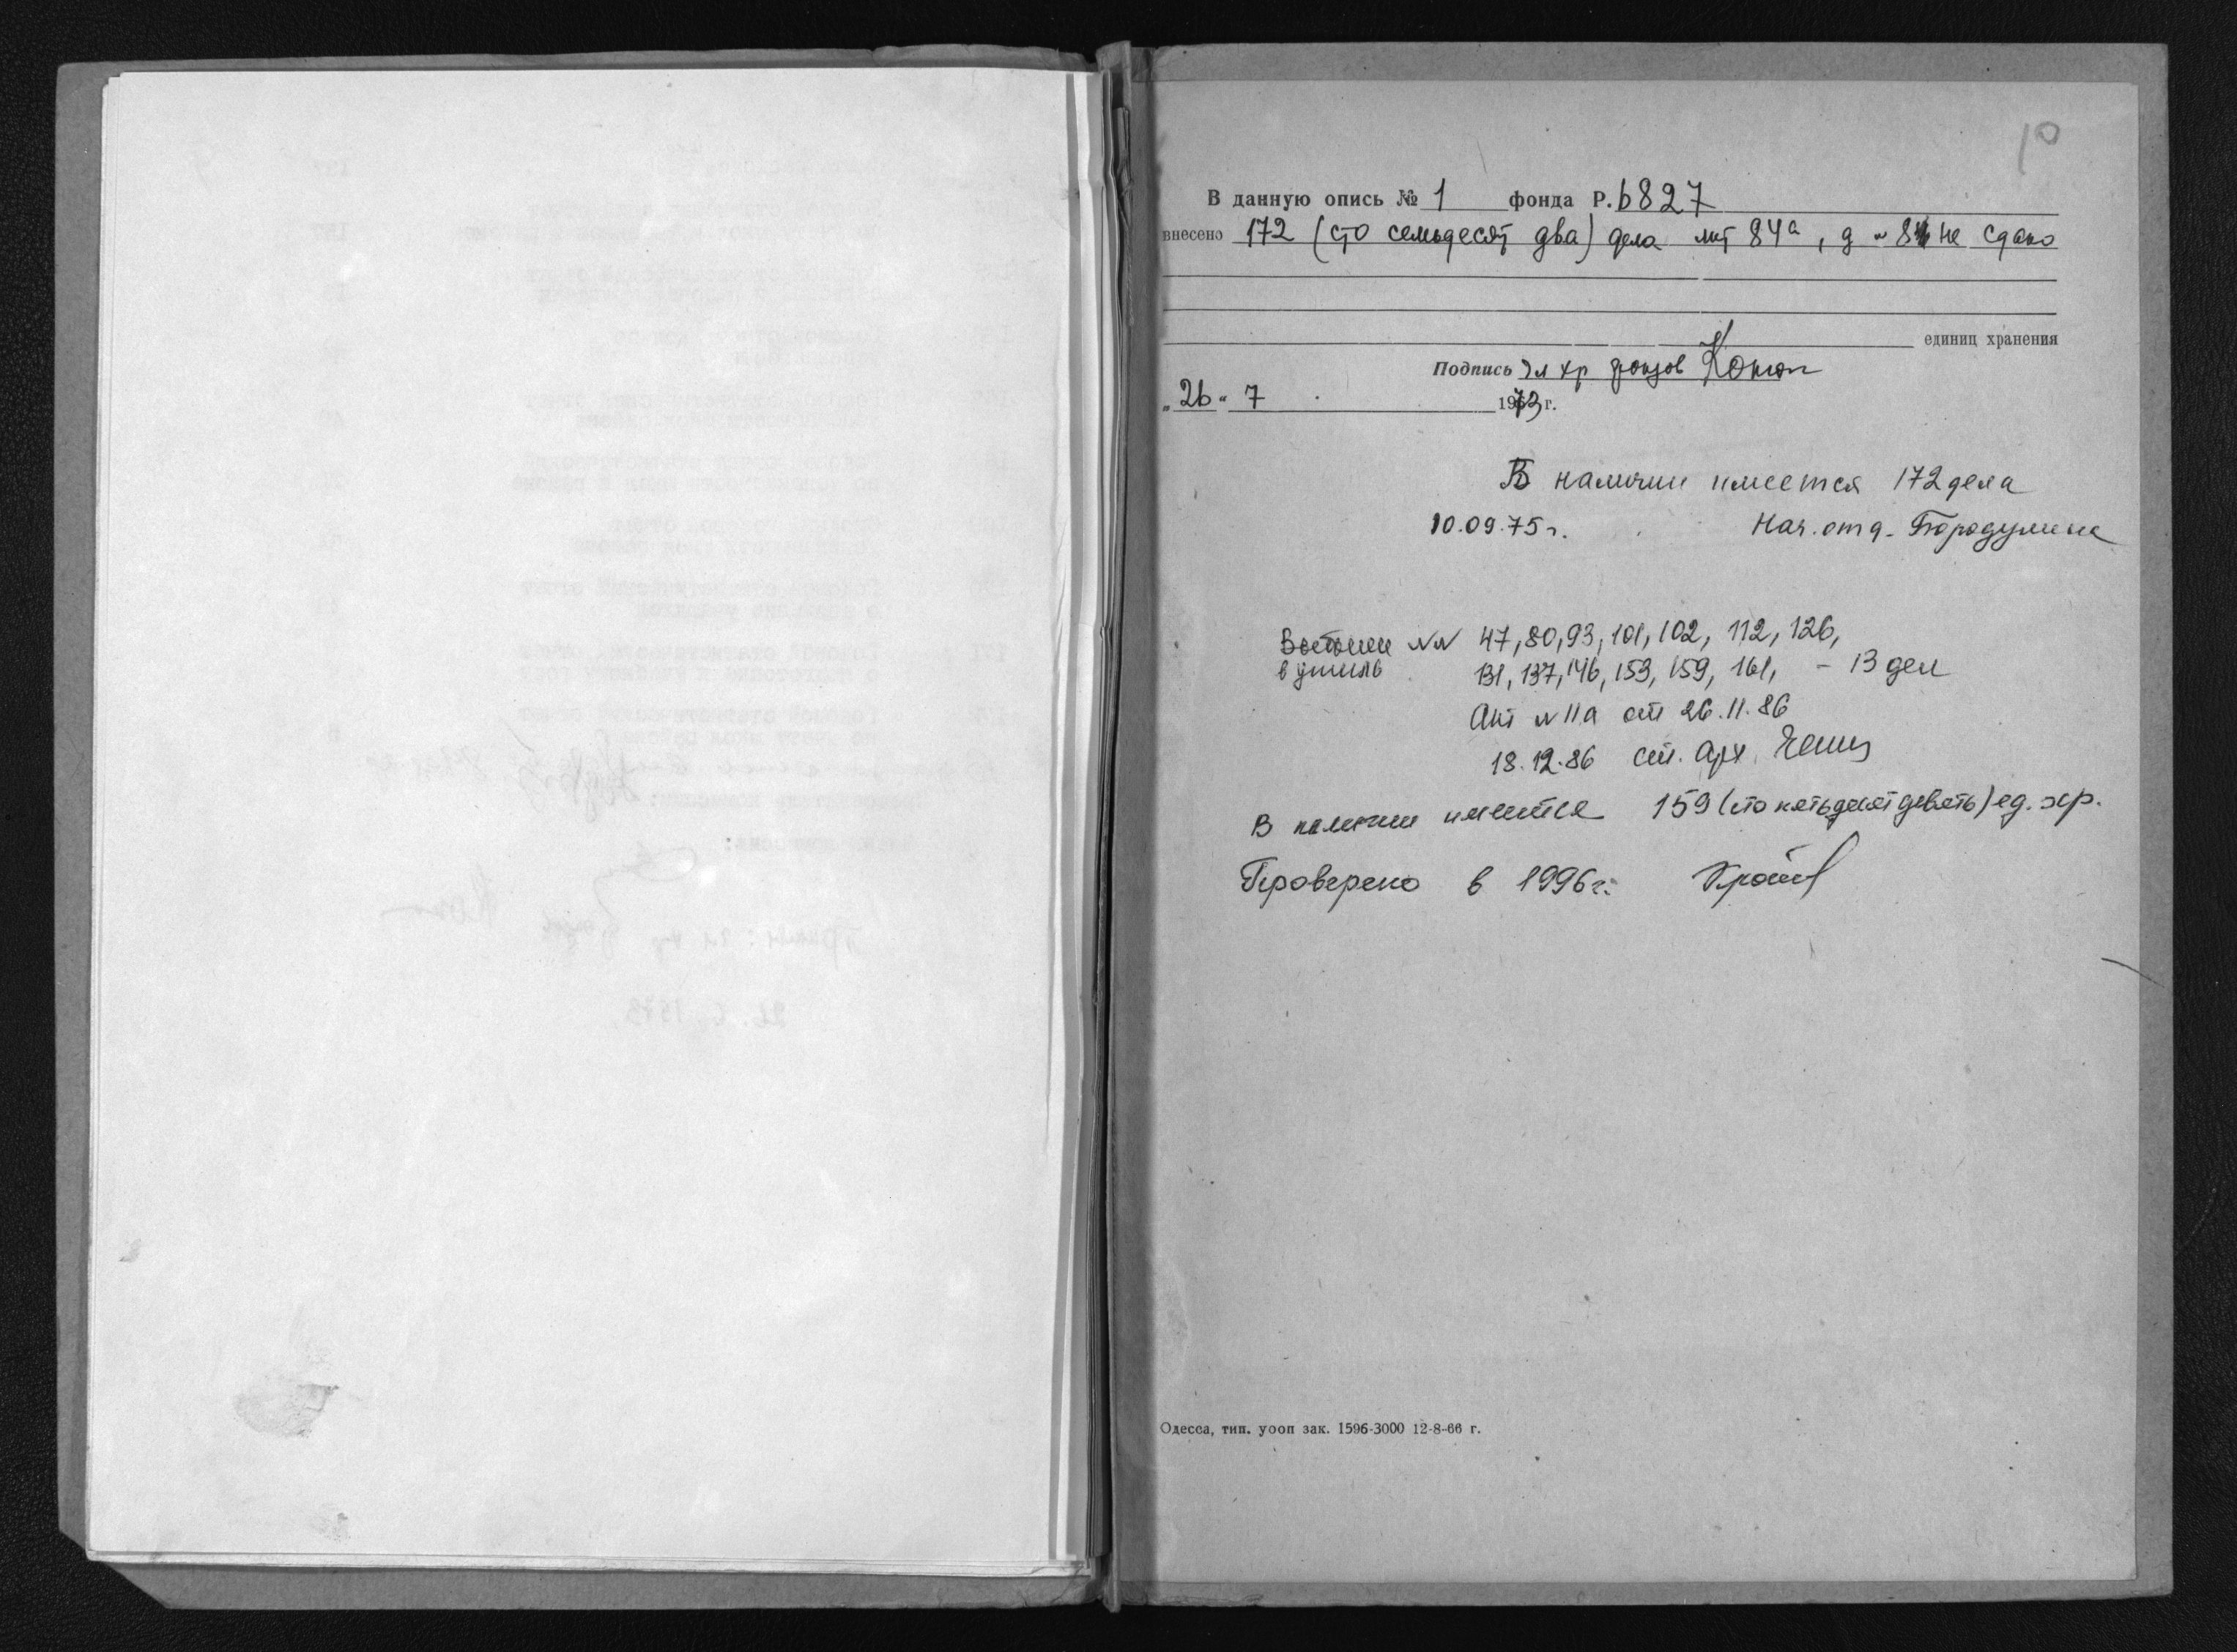 10
В данную опись № 1 фонда Р. 6827
внесено 172 (сто семьдесят два) дела лит 84а, д № 84 не сдано
единиц хранения
Подпись Гл хр фондов
„26“ 7 1973 г.
В наличии имеется 172 дела
10.09.75 г. Нач. отд. Бородулина
в утиль №№ 47, 80, 93, 101, 102, 112, 126,
131, 137, 146, 153, 159, 161, – 13 дел
Акт № 11а от 26.11.86
18.12.86 ст. арх.
В наличии имеется 159 (сто пятьдесят девять) ед. хр.
Проверено в 1996 г.
Одесса, тип. уооп зак. 1596-3000 12-8-66 г.